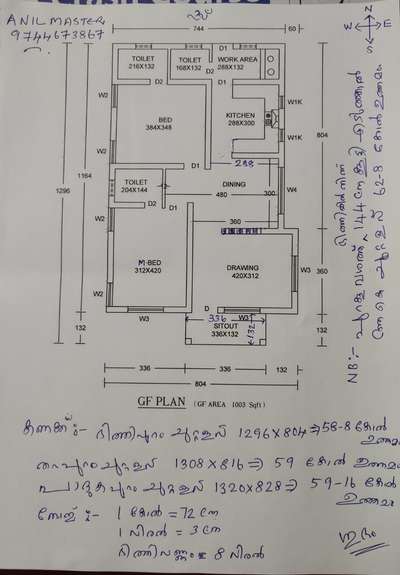 ANIL MASTER
9744673867
N
W E
S
744
60
TOILET
216X132
TOILET
168X132
D1
WORK AREA
288X132
D2
D2
W2
BED
384X348
KITCHEN
288X300
W1K
W1K
D1
D1
288
804
1296
1164
TOILET
204X144
DINING
480
300
W4
D2
D1
W2
360
M-BED
312X420
DRAWING
420X312
W3
360
W2
W3
D
336
W3
132
132
SITOUT
336X132
132
132
336
336
132
804
GF PLAN (GF AREA 1003 Sqft)
കണക്ക്:- ഭിത്തിപ്പുറം ചുറ്റളവ് 1296X804 => 58-8 കോൽ
ഉത്തമം
തറപ്പുറം ചുറ്റളവ് 1308X816 => 59 കോൽ ഉത്തമം
പാദുകപ്പുറം ചുറ്റളവ് 1320X828 => 59-16 കോൽ
ഉത്തമം
1 കോൽ = 72 cm
1 വിരൽ = 3 cm
ഭിത്തിവണ്ണം = 8 വിരൽ
ശുഭം
NB:-
144 cm
62-8 കോൽ ഉത്തമം